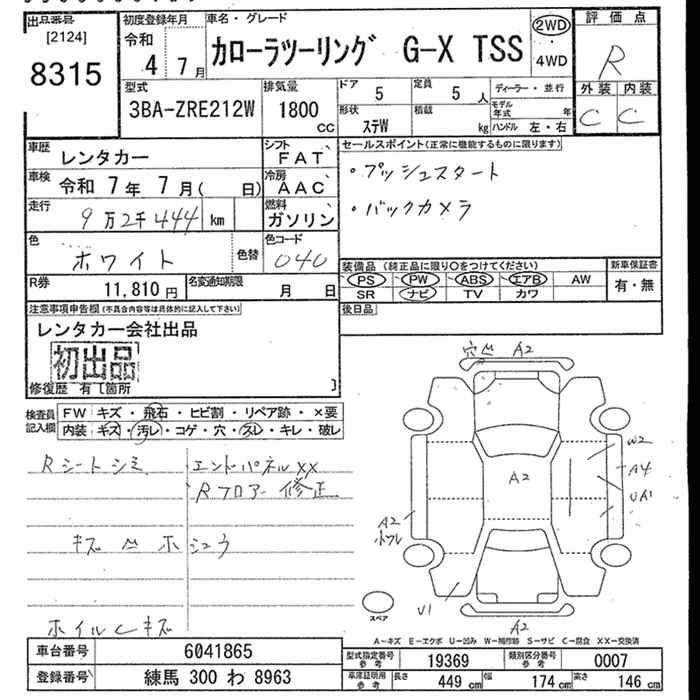 出品番号
[2124]
8315
初度登録年月
令和
4 7月
車名・グレード
カローラツーリング G-X TSS
2WD
・
4WD
評価点
R
外装 内装
C C
型式
3BA-ZRE212W
排気量
1800
cc
ドア
5
定員
5 人
形状
ステW
積載
kg
ディーラー・並行
モデル年式 年
ハンドル 左・右
車歴
レンタカー
シフト
FAT
車検
令和 7年 7月( 日)
冷房
AAC
走行
9万2千444 km
燃料
ガソリン
色
ホワイト
色替
色コード
040
R券
11,810円
名変通知期限
月 日
セールスポイント(正常に機能するものに限ります)
・プッシュスタート
・バックカメラ
装備品(純正品に限り○をつけてください)
PS PW ABS エアB AW
SR ナビ TV カワ
新車保証書
有・無
後日品
注意事項申告欄(不具合内容等は具体的に記入して下さい)
レンタカー会社出品
初出品
修復歴 有[箇所 ]
検査員記入欄
FW キズ・飛石・ヒビ割・リペア跡・×要
内装 キズ・汚レ・コゲ・穴・スレ・キレ・破レ
Rシートシミ
エンドパネルXX
Rフロアー修正
ホイルCキズ
A2
A2
W2
A4
UA1
A2
U1
A2
スペア
A-キズ E-エクボ U-凹み W-補修跡 S-サビ C-腐食 XX-交換済
車台番号
6041865
登録番号
練馬 300 わ 8963
型式指定番号
参考
19369
類別区分番号
参考
0007
車庫証明用
参考
長さ
449 cm
幅
174 cm
高さ
146 cm